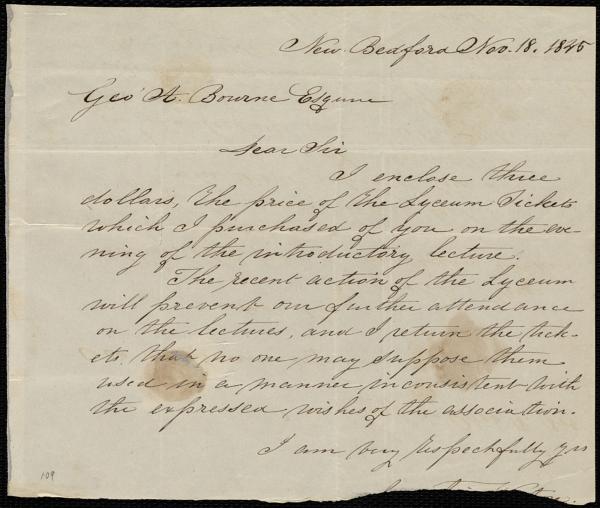 New Bedford Nov. 18. 1845
Geo A. Bourne Esquire
Dear Sir
I enclose three
dollars, the price of the Lyceum Tickets
which I purchased of you on the eve-
ning of the introductory lecture.
The recent action of the Lyceum
will prevent our further attendance
on the lectures, and I return the tick-
ets, that no one may suppose them
used in a manner inconsistent with
the expressed wishes of the association.
I am very respectfully yrs
109